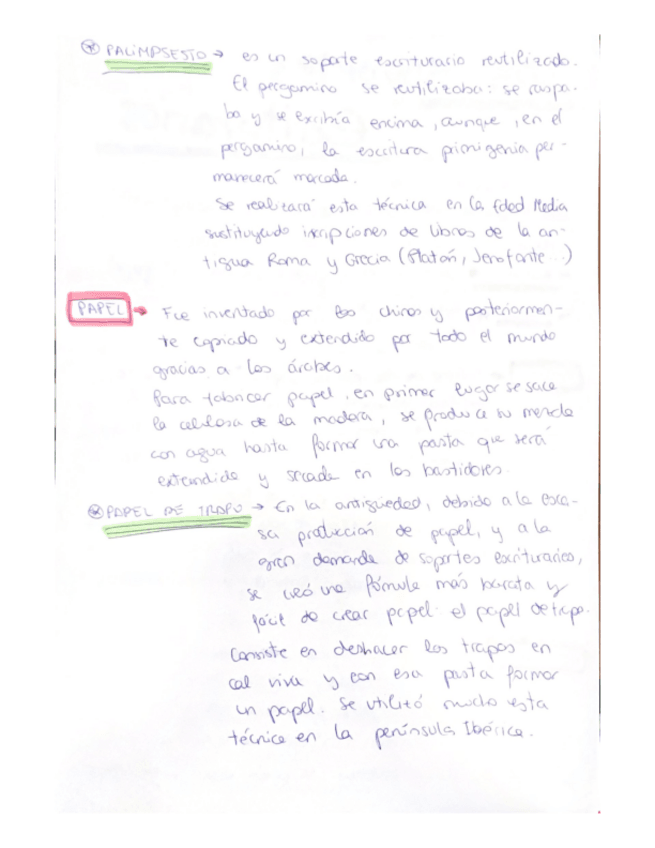 ⊛ PALIMPSESTO → es un soporte escriturario reutilizado.
El pergamino se reutilizaba: se raspa-
ba y se escribía encima, aunque, en el
pergamino, la escritura primigenia per-
manecerá marcada.
Se realizará esta técnica en la Edad Media
sustituyendo inscripciones de libros de la an-
tigua Roma y Grecia (Platón, Jenofonte...)
PAPEL → Fue inventado por los chinos y posteriormen-
te copiado y extendido por todo el mundo
gracias a los árabes.
Para fabricar papel, en primer lugar se saca
la celulosa de la madera, se produce su mezcla
con agua hasta formar una pasta que será
extendida y secada en los bastidores.
⊛ PAPEL DE TRAPO → En la antigüedad, debido a la esca-
sa producción de papel, y a la
gran demanda de soportes escriturarios,
se creó una fórmula más barata y
fácil de crear papel: el papel de trapo.
Consiste en deshacer los trapos en
cal viva y con esa pasta formar
un papel. Se utilizó mucho esta
técnica en la península Ibérica.